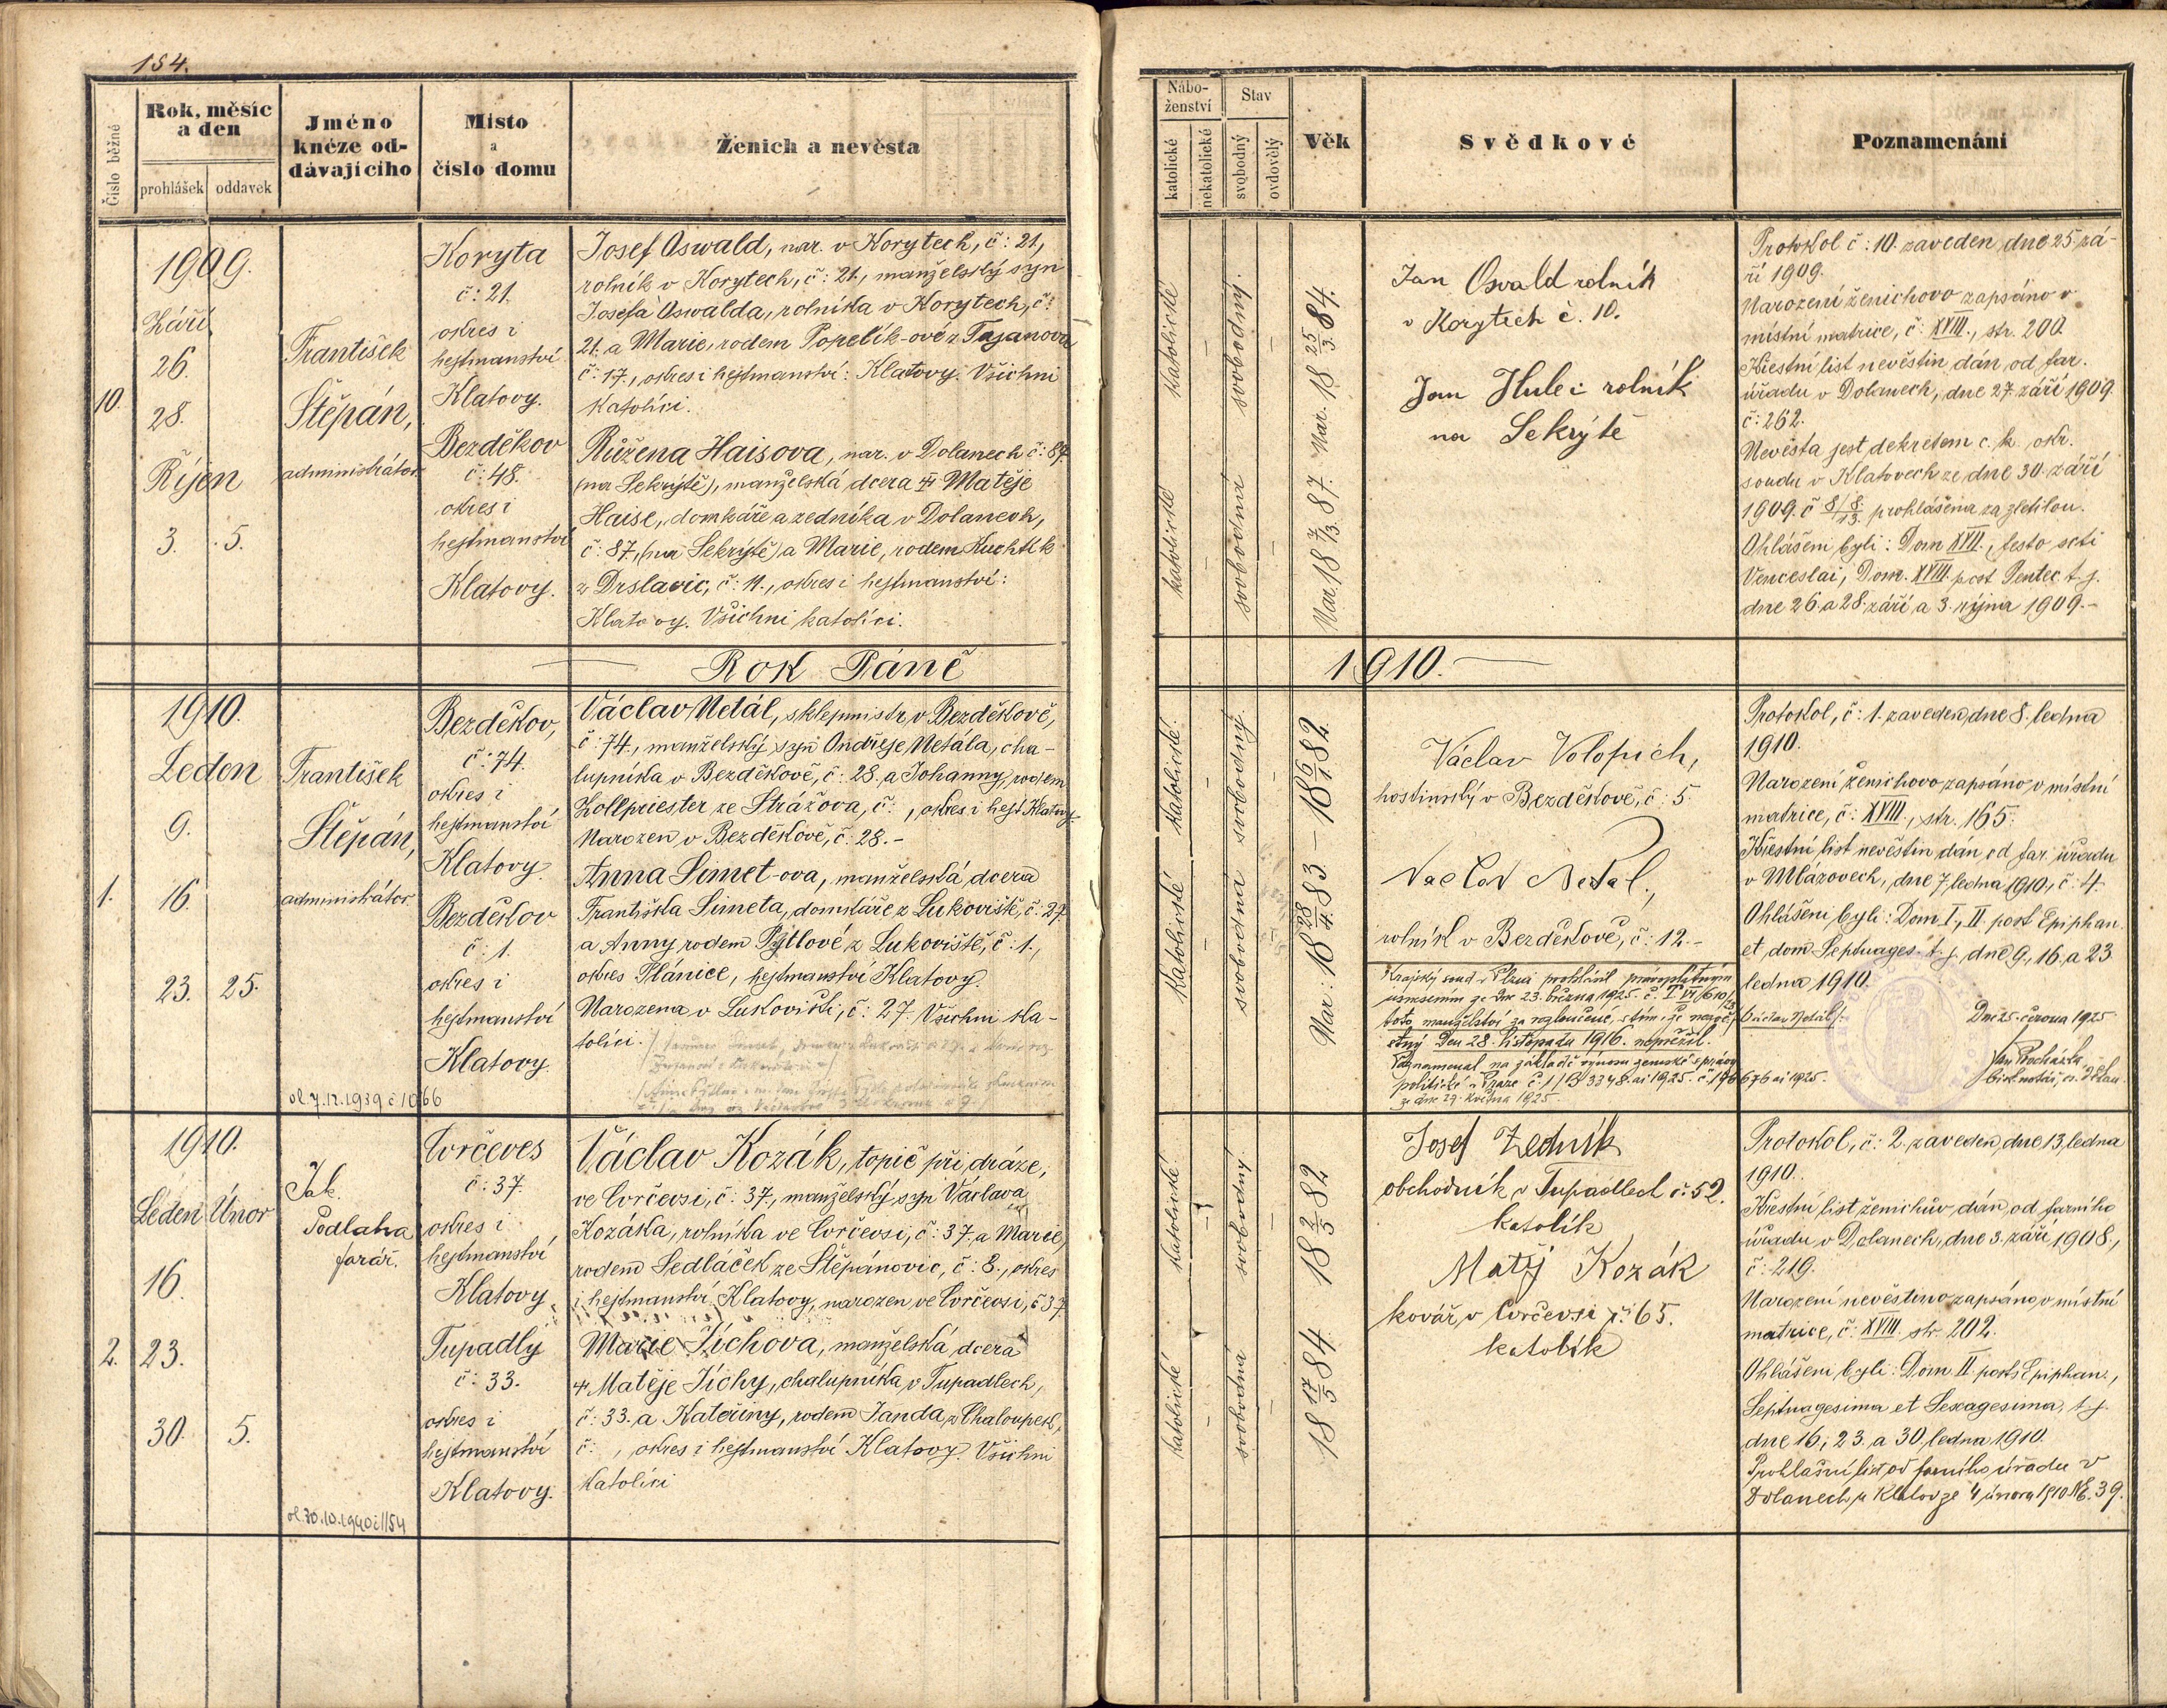 184.
Číslo běžné
Rok, měsíc
a den
prohlášek
oddavek
Jméno
knéze od-
dávajícího
Místo
a
číslo domu
Ženich a nevěsta
1909.
Září
26.
10.
28.
Říjen
3. 5.
František
Štěpán,
administrátor.
Koryta
č: 21.
okres i
hejtmanství
Klatovy.
Bezděkov
č: 48.
okres i
hejtmanství
Klatovy.
Josef Oswald, nar. v Korytech, č: 21,
rolník v Korytech, č: 21., manželský syn
Josefa Oswalda, rolníka v Korytech, č:
21. a Marie, rodem Popelík-ové z Tajanova
č: 17., okres i hejtmanství: Klatovy. Všichni
katolíci.
Růžena Haisova, nar. v Dolanech č: 87.
(na Sekrýtě), manželská dcera † Matěje
Haise, domkáře a zedníka v Dolanech,
č: 87, (na Sekrýtě) a Marie, rodem Kuchtík
z Drslavic, č: 11., okres i hejtmanství:
Klatovy. Všichni katolíci.
Rok Páně
1910.
Leden
9.
1. 16.
23. 25.
František
Štěpán,
administrátor.
Bezděkov,
č: 74.
okres i
hejtmanství
Klatovy.
Bezděkov
č: 1.
okres i
hejtmanství
Klatovy.
Václav Netál, sklepmistr v Bezděkově,
č: 74., manželský syn Ondřeje Netála, cha-
lupníka v Bezděkově, č: 28. a Johanny, rodem
Zollpriester ze Strážova, č: , okres i hejt. Klatovy.
Narozen v Bezděkově, č: 28.-
Anna Šimet-ova, manželská dcera
Františka Šimeta, domkáře z Lukoviště, č: 27.
a Anny, rodem Pýtlové z Lukoviště, č: 1.,
okres Plánice, hejtmanství Klatovy.
Narozena v Lukovišti, č: 27. Všichni ka-
tolíci.
ol. 7.12.1939 č 1066
1910.
Leden Únor
16.
2. 23.
30. 5.
Jak.
Podlaha
farář.
Čorčeves
č: 37.
okres i
hejtmanství
Klatovy.
Tupadly
č: 33.
okres i
hejtmanství
Klatovy.
Václav Kozák, topič při dráze,
ve Čorčevsi, č: 37., manželský syn Václava
Kozáka, rolníka ve Čorčevsi, č: 37. a Marie,
rodem Sedláček ze Štěpánovic, č: 8., okres
i hejtmanství Klatovy, narozen ve Čorčevsi, č 37.
Marie Jíchova, manželská dcera
† Matěje Jíchy, chalupníka v Tupadlech,
č: 33. a Kateřiny, rodem Janda z Chaloupek,
č: , okres i hejtmanství Klatovy. Všichni
katolíci
ol. 30.10.1940 č 1154
Nábo-
ženství
Stav
katolické
nekatolické
svobodný
ovdovělý
Věk
Svědkové
Poznamenání
katolické
–
svobodný.
–
Nar. 18 25/3. 84.
katolické
–
svobodná
–
Nar. 18 7/3. 87.
Jan Osvald rolník
v Korytech č. 10.
Jan Hulec rolník
na Sekrýtě
Protokol č: 10. zaveden dne 25. zá-
ří 1909.
Narození ženichovo zapsáno v
místní matrice, č: XVIII., str. 200.
Křestní list nevěstin dán od far.
úřadu v Dolanech, dne 27. září 1909.
č: 262.
Nevěsta jest dekretem c. k. okr.
soudu v Klatovech ze dne 30. září
1909. č 8/8 13. prohlášena za zletilou.
Ohlášeni byli: Dom XVII., festo scti
Venceslai, Dom. XVIII. post Pentec. t. j.
dne 26. a 28. září a 3. října 1909.-
1910.
katolické
–
svobodný.
–
18 6/1 82.
katolické
–
svobodná
–
Nar: 18 28/4. 83.
Václav Volopich,
hostinský v Bezděkově, č: 5.
Václav Netal,
rolník v Bezděkově, č: 12.-
Krajský soud v Plzni prohlásil právoplatným
usnesením ze dne 23. března 1925. č.
toto manželství za rozloučené s tím, že
den 28. listopadu 1916. nepřežil.
Poznamenal na základě výnosu zemské správy
politické v Praze
ze dne 29. května 1925.
Protokol, č: 1. zaveden dne 8. ledna
1910.
Narození ženichovo zapsáno v místní
matrice, č: XVIII., str. 165.
Křestní list nevěstin dán od far. úřadu
v Mlázovech, dne 7. ledna 1910, č: 4.
Ohlášeni byli: Dom. I., II. post Epiphan.
et dom. Septuages. t. j. dne 9., 16. a 23.
ledna 1910.
Václav Netál
Dne 25. června 1925
Jan Procházka
katolické
–
svobodný
–
18 2/5 82
katolické
–
svobodná
–
18 17/5 84
Josef Zedník
obchodník v Tupadlech č: 52.
katolík
Matěj Kozák
kovář v Čorčevsi č: 65.
katolík
Protokol, č: 2. zaveden dne 13. ledna
1910.
Křestní list ženichův dán od farního
úřadu v Dolanech, dne 3. září 1908.,
č: 219.
Narození nevěstino zapsáno v místní
matrice, č: XVIII. str. 202.
Ohlášeni byli: Dom II. post Epiphan.,
Septuagesima et Sexagesima, t. j.
dne 16., 23. a 30. ledna 1910.
Prohlašní list od farního úřadu v
Dolanech u Klatov ze 4 února 1910 NE. 39.